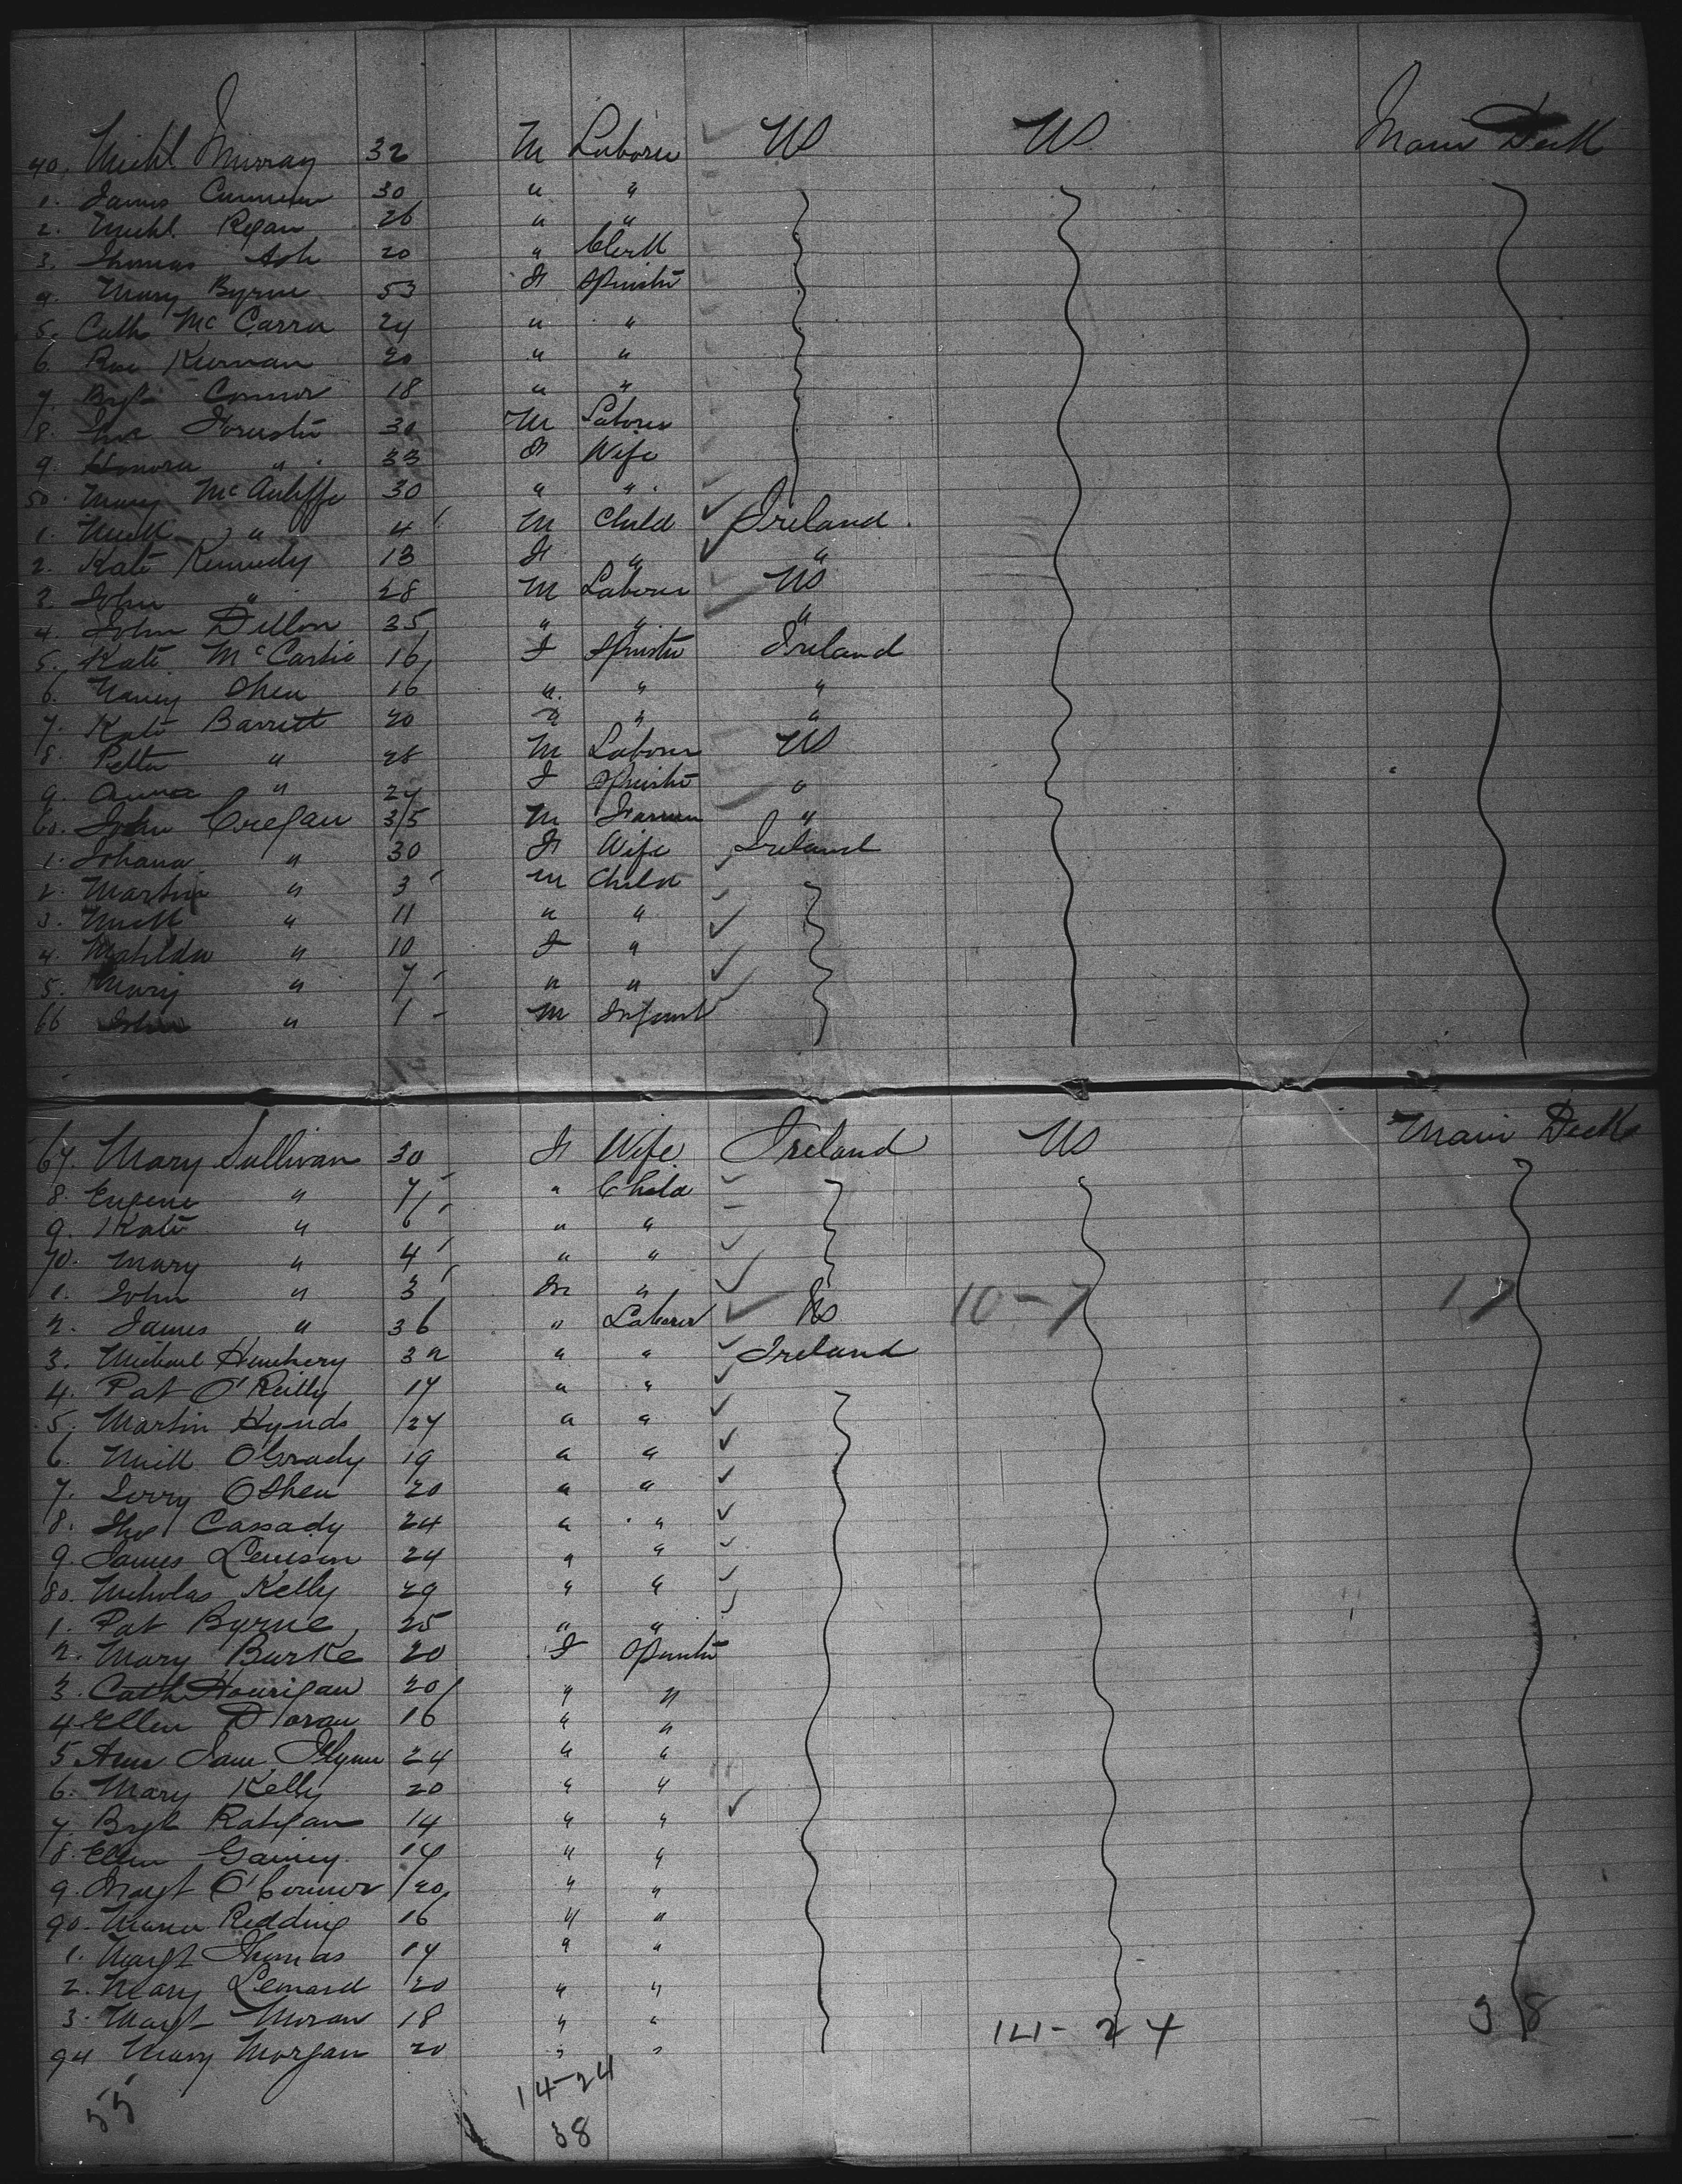 40. Michl Murray 32 M Laborer US US Main Deck
1. James 30 " "
2. Michl Regan 26 " "
3. Thomas Ash 20 " Clerk
4. Mary Byrne 53 F Spinstr
5. Cath Mc Carra 24 " "
6. Rose Kiernan 20 " "
7. Bgt Connor 18 " "
8. 30 M Laborer
9. Honora " 33 F Wife
50. Mary McAuliffe 30 " "
1. Mick " 4 M Child Ireland
2. Kate Kennedy 13 F " "
3. John " 28 M Laborer US
4. John Dillon 35 " " "
5. Kate McCartie 16 F Spinstr Ireland
6. Nancy Shea 16 " " "
7. Kate Barrett 20 " " "
8. Peter " 28 M Laborer US
9. Anna " 24 F Spinstr "
60. John Cregan 35 M Farmer "
1. Johana " 30 F Wife Ireland
2. Martin " 3 M Child
3. Mick " 11 " "
4. Matilda " 10 F "
5. Mary " 7 " "
66 John " 1 M Infant
67. Mary Sullivan 30 F Wife Ireland US Main Deck
8. Eugene " 7 " Child
9. Kate " 6 " "
70. Mary " 4 " "
1. John " 3 M " 10-7 17
2. James " 36 " Laborer US
3. Michael 32 " " Ireland
4. Pat O'Reilly 17 " "
5. Martin Hynds 27 " "
6. Mick OGrady 19 " "
7. Jerry OShea 20 " "
8. Thos Cassady 24 " "
9. James Lenison 24 " "
80. Nicholas Kelly 29 " "
1. Pat Byrne 25 " "
2. Mary Burke 20 F Spinstr
3. Cath Hourigan 20 " "
4. Ellen Doran 16 " "
5 Ann Jane Flynn 24 " "
6. Mary Kelly 20 " "
7. Bgt Ratigan 14 " "
8. Ellen Gainey 17 " "
9. Magt O'Connor 20 " "
90. Maria Redding 16 " "
1. Margt Thomas 17 " "
2. Mary Lenard 20 " "
3. Margt Moran 18 " " 14-24 38
94 Mary Morgan 20 " "
55 14-24
38